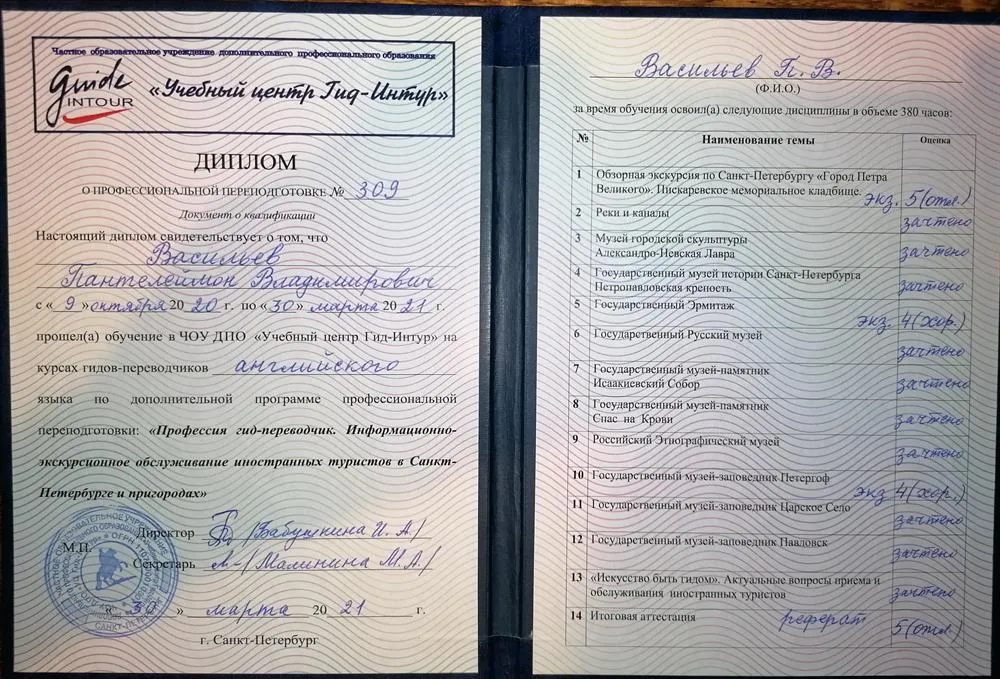 Частное образовательное учреждение дополнительного профессионального образования
Guide
INTOUR
«Учебный центр Гид-Интур»
ДИПЛОМ
О ПРОФЕССИОНАЛЬНОЙ ПЕРЕПОДГОТОВКЕ № 309
Документ о квалификации
Настоящий диплом свидетельствует о том, что
Васильев
Пантелеймон Владимирович
с « 9 » октября 20 20 г. по « 30 » марта 20 21 г.
прошел(а) обучение в ЧОУ ДПО «Учебный центр Гид-Интур» на
курсах гидов-переводчиков английского
языка по дополнительной программе профессиональной
переподготовки: «Профессия гид-переводчик. Информационно-
экскурсионное обслуживание иностранных туристов в Санкт-
Петербурге и пригородах»
Директор /Бабушкина И. А/
М.П.
Секретарь /Малинина М.А/
« 30 » марта 20 21 г.
г. Санкт-Петербург
Васильев П. В.
(Ф.И.О.)
за время обучения освоил(а) следующие дисциплины в объеме 380 часов:
№ Наименование темы Оценка
1 Обзорная экскурсия по Санкт-Петербургу «Город Петра
Великого». Пискаревское мемориальное кладбище. экз. 5(отл.)
2 Реки и каналы зачтено
3 Музей городской скульптуры
Александро-Невская Лавра зачтено
4 Государственный музей истории Санкт-Петербурга
Петропавловская крепость зачтено
5 Государственный Эрмитаж экз. 4(хор.)
6 Государственный Русский музей зачтено
7 Государственный музей-памятник
Исаакиевский Собор зачтено
8 Государственный музей-памятник
Спас на Крови зачтено
9 Российский Этнографический музей зачтено
10 Государственный музей-заповедник Петергоф экз 4(хор.)
11 Государственный музей-заповедник Царское Село зачтено
12 Государственный музей-заповедник Павловск зачтено
13 «Искусство быть гидом». Актуальные вопросы приема и
обслуживания иностранных туристов зачтено
14 Итоговая аттестация реферат 5(отл.)